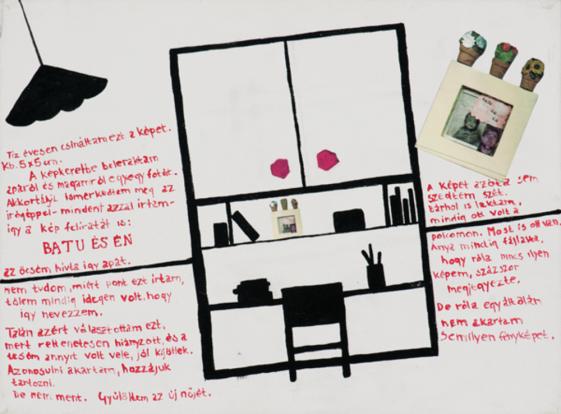 Tíz évesen csináltam ezt a képet.
Kb. 5x5 cm.
A képkeretbe beleraktam
apáról és magamról egy-egy fotót.
Akkortájt ismerkedtem meg az
írógéppel - mindent azzal írtam -
így a kép feliratát is:
BATU ÉS ÉN
az öcsém hívta így apát.
Nem tudom, miért pont ezt írtam,
tőlem mindig idegen volt, hogy
így nevezzem.
Talán azért választottam ezt,
mert rettenetesen hiányzott, és a
tesóm annyit volt vele, jól kijöttek.
Azonosulni akartam, hozzájuk
tartozni.
De nem ment. Gyűlöltem az új nőjét.
A képet azóta sem
szedtem szét.
Bárhol is laktam,
mindig ott volt a
polcomon. Most is ott van.
Anya mindig fájlalta,
hogy róla nincs ilyen
képem, százszor
megjegyezte.
De róla egyáltalán
nem akartam
semilyen fényképet.